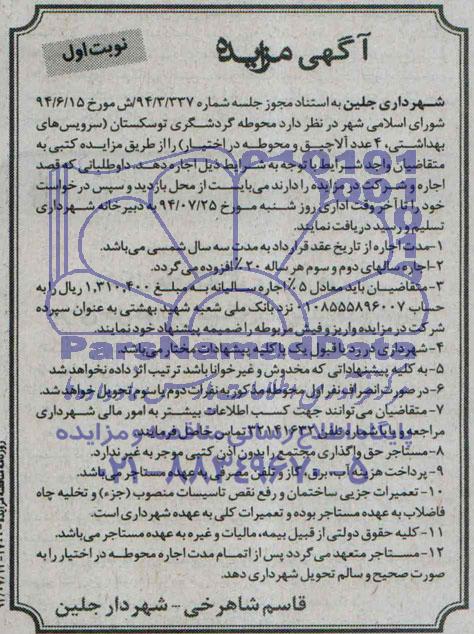 آگهی مزایده
نوبت اول
شهرداری جلین به استناد مجوز جلسه شماره ۹۴/۳/۳۳۷/ش مورخ ۹۴/۶/۱۵
شورای اسلامی شهر در نظر دارد محوطه گردشگری توسکستان (سرویس‌های
بهداشتی، ۴ عدد آلاچیق و محوطه در اختیار) را از طریق مزایده کتبی به
متقاضیان واجد شرایط با توجه به شرایط ذیل اجاره دهد. داوطلبانی که قصد
اجاره و شرکت در مزایده را دارند می‌بایست از محل بازدید و سپس درخواست
خود را تا آخر وقت اداری روز شنبه مورخ ۹۴/۰۷/۲۵ به دبیرخانه شهرداری
تسلیم و رسید دریافت نمایند.
۱-مدت اجاره از تاریخ عقد قرارداد به مدت سه سال شمسی می‌باشد.
۲-اجاره سالهای دوم و سوم هر ساله ۲۰٪ افزوده می‌گردد.
۳-متقاضیان باید معادل ۵٪ اجاره سالیانه به مبلغ ۱,۳۱۰,۴۰۰ ریال را به
حساب ۰۱۰۸۵۵۵۸۹۶۰۰۷ نزد بانک ملی شعبه شهید بهشتی به عنوان سپرده
شرکت در مزایده واریز و فیش مربوطه را ضمیمه پیشنهاد خود نمایند.
۴-شهرداری در رد یا قبول یک یا کلیه پیشنهادات مختار می‌باشد.
۵-به کلیه پیشنهاداتی که مخدوش و غیر خوانا باشد ترتیب اثر داده نخواهد شد
۶-در صورت انصراف نفر اول محوطه مذکور به نفرات دوم یا سوم تحویل خواهد شد.
۷-متقاضیان می‌توانند جهت کسب اطلاعات بیشتر به امور مالی شهرداری
مراجعه و یا با شماره تلفن ۳۲۱۴۱۶۳۲ تماس حاصل فرمایند.
۸-مستاجر حق واگذاری مجتمع را بدون اذن کتبی موجر به غیر ندارد.
۹-پرداخت هزینه آب، برق، گاز و تلفن مصرفی به عهده مستاجر می‌باشد.
۱۰-تعمیرات جزیی ساختمان و رفع نقص تاسیسات منصوب (جزء) و تخلیه چاه
فاضلاب به عهده مستاجر بوده و تعمیرات کلی به عهده شهرداری است.
۱۱-کلیه حقوق دولتی از قبیل بیمه، مالیات و غیره به عهده مستاجر می‌باشد.
۱۲-مستاجر متعهد می‌گردد پس از اتمام مدت اجاره محوطه در اختیار را به
صورت صحیح و سالم تحویل شهرداری دهد.
قاسم شاهرخی - شهردار جلین
ParsNamadData
پایگاه اطلاع رسانی مناقصه و مزایده
۰۲۱-۸۸۳۴۹۶۷۰-۵